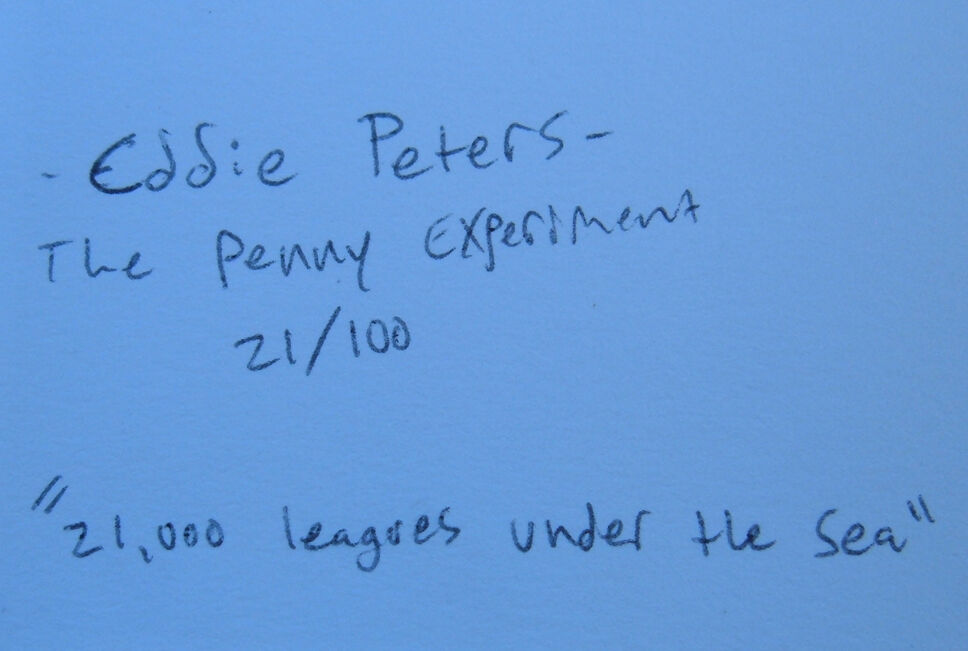 - Eddie Peters -
The Penny Experiment
21/100
"21,000 leagues under the Sea"